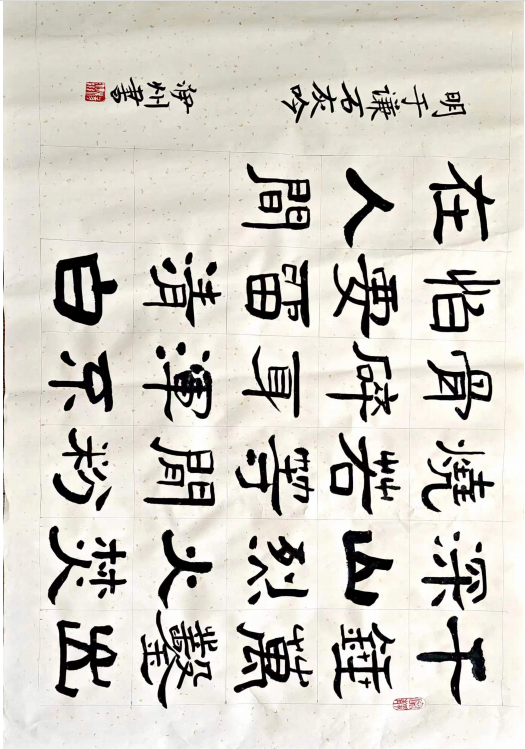 千錘萬鑿出
深山烈火焚
燒若等閒粉
骨碎身渾不
怕要留清白
在人間
明于谦石灰吟
州書